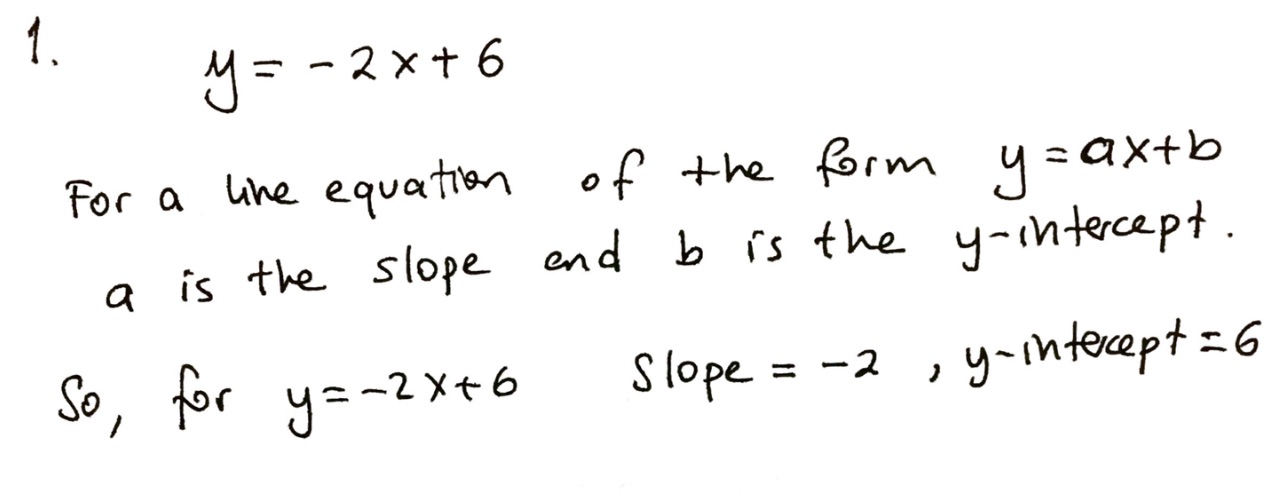 1.
y = - 2x + 6
For a line equation of the form y = ax+b
a is the slope and b is the y-intercept.
So, for y = -2x+6 Slope = -2 , y-intercept = 6